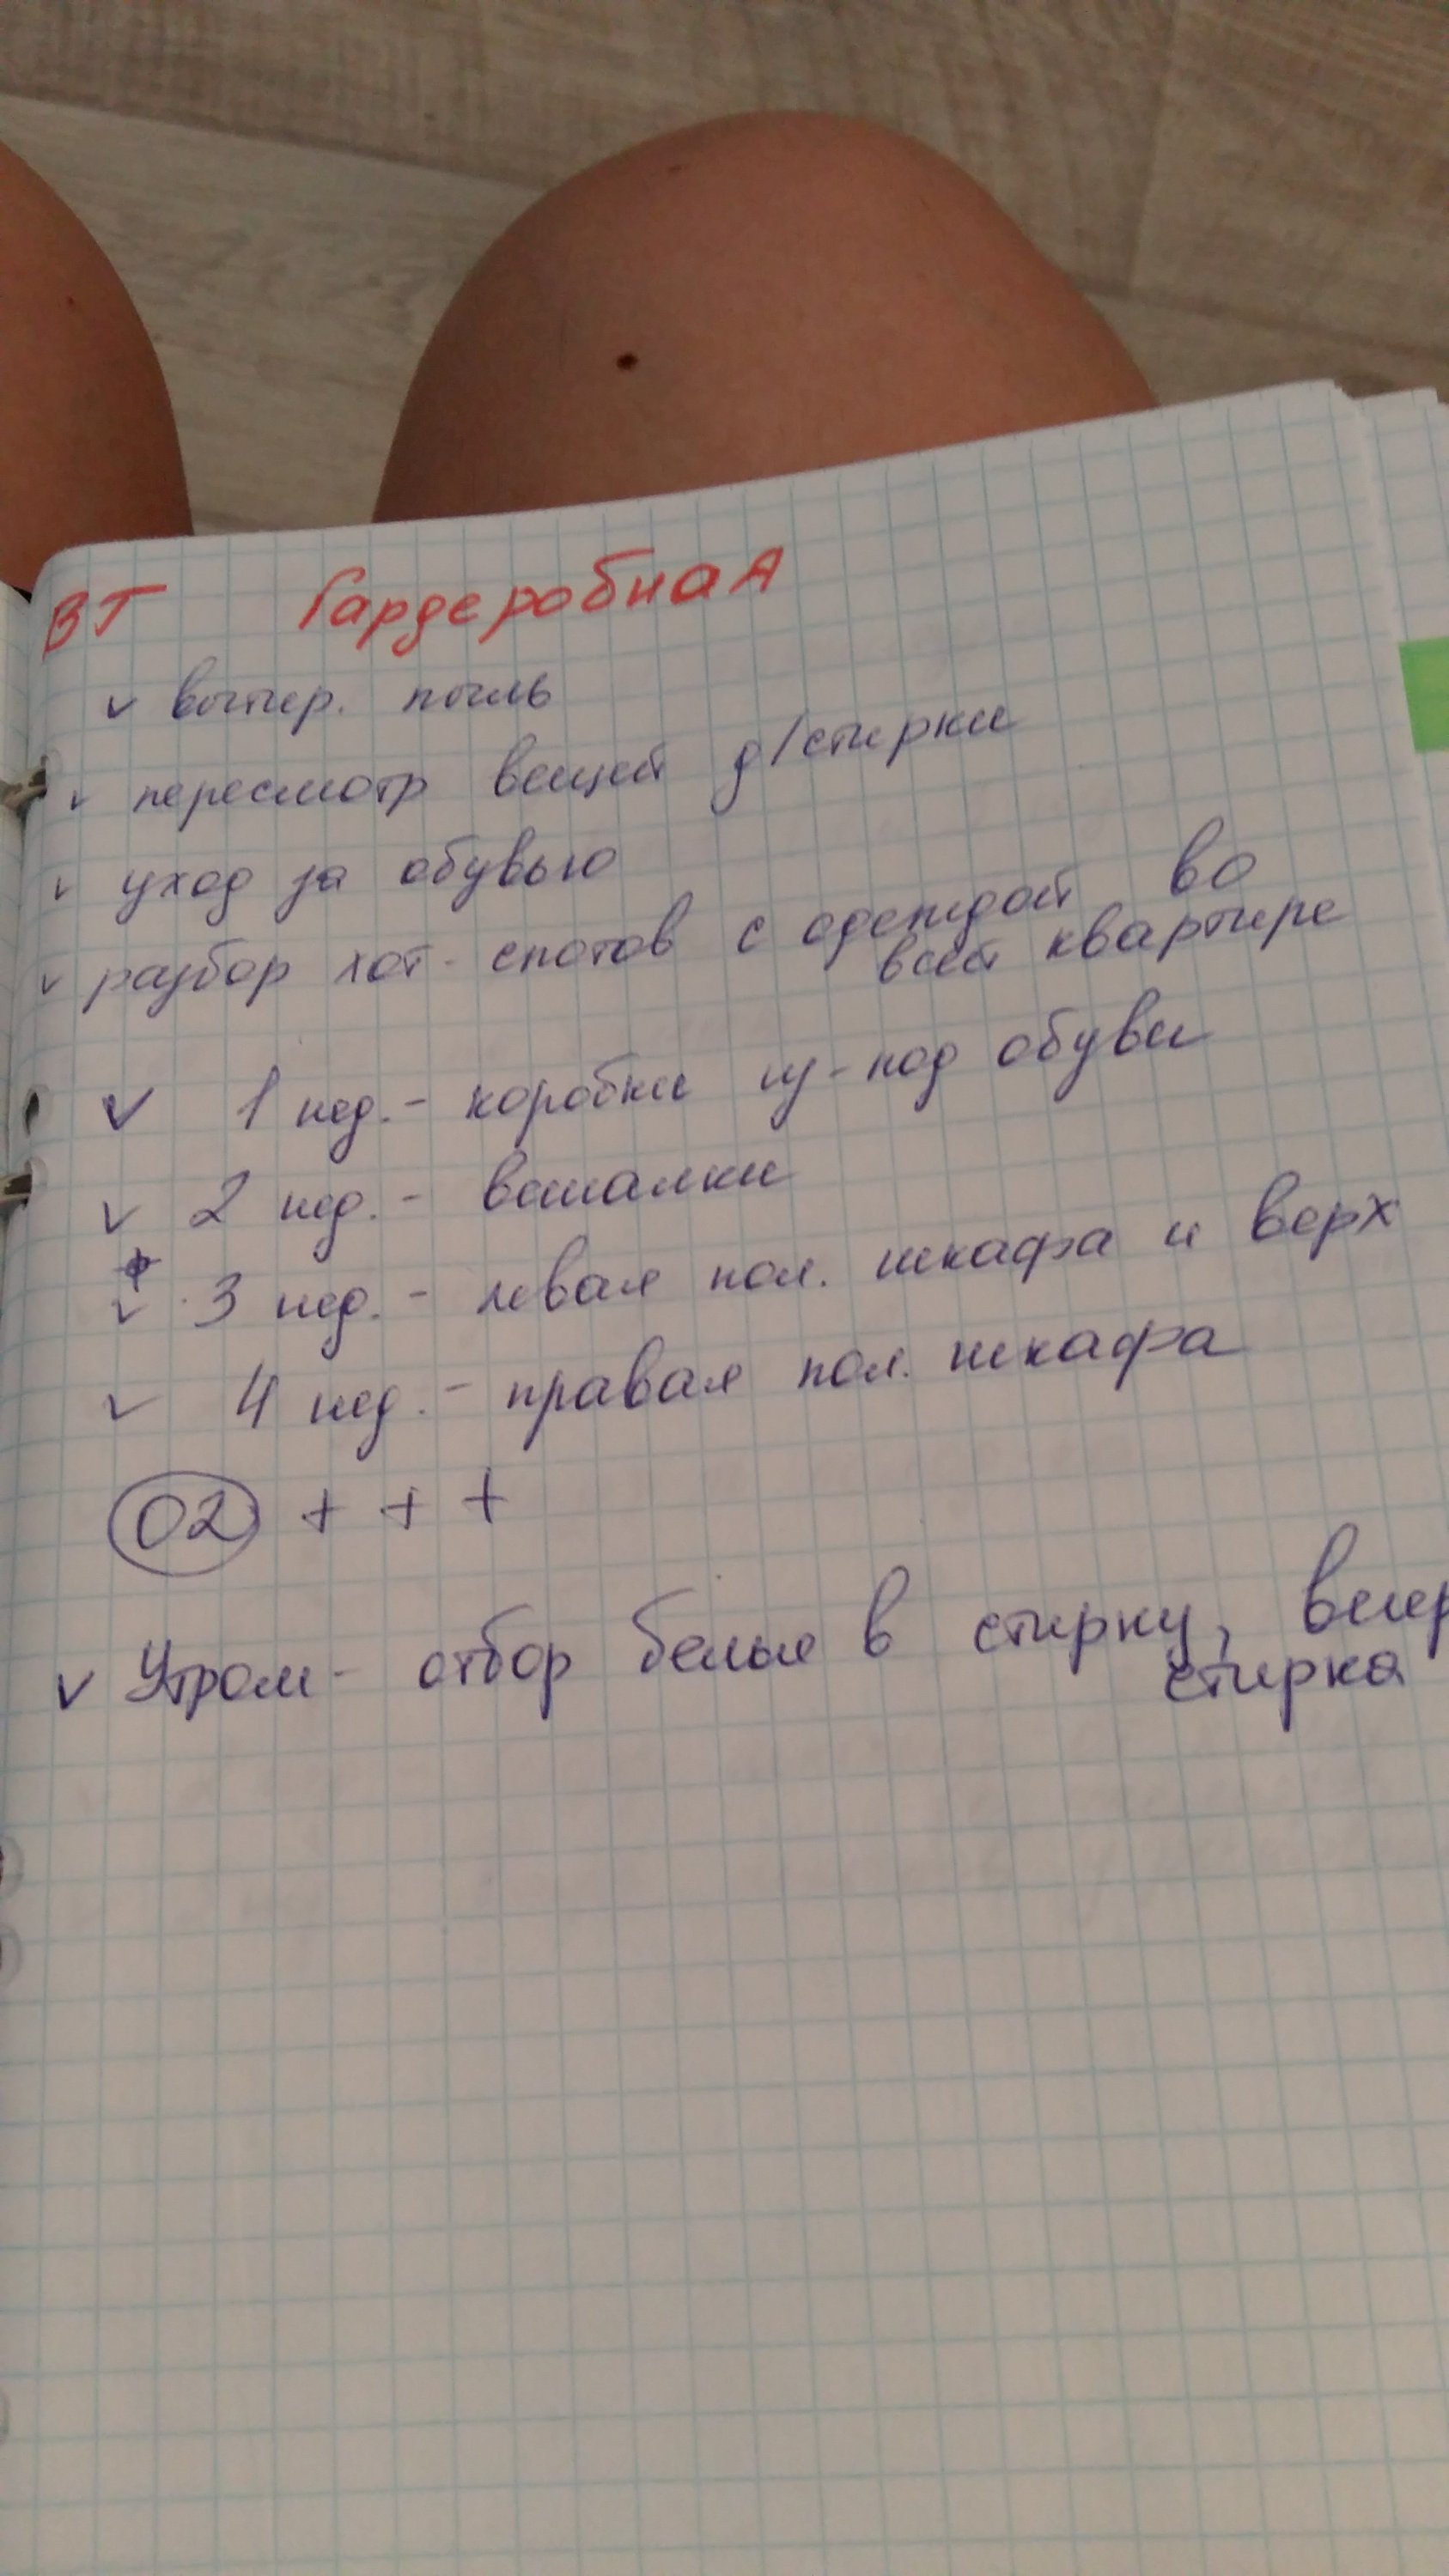 ВТ Гардеробная
v вытир. пыль
v пересмотр вещей д/стирки
v уход за обувью
v разбор хот-спотов с одеждой во
всей квартире
v 1 нед. - коробки из-под обуви
v 2 нед. - вешалки
v 3 нед. - левая пол. шкафа и верх
v 4 нед. - правая пол. шкафа
02 + + +
v Утром - отбор белья в стирку, вечер
стирка